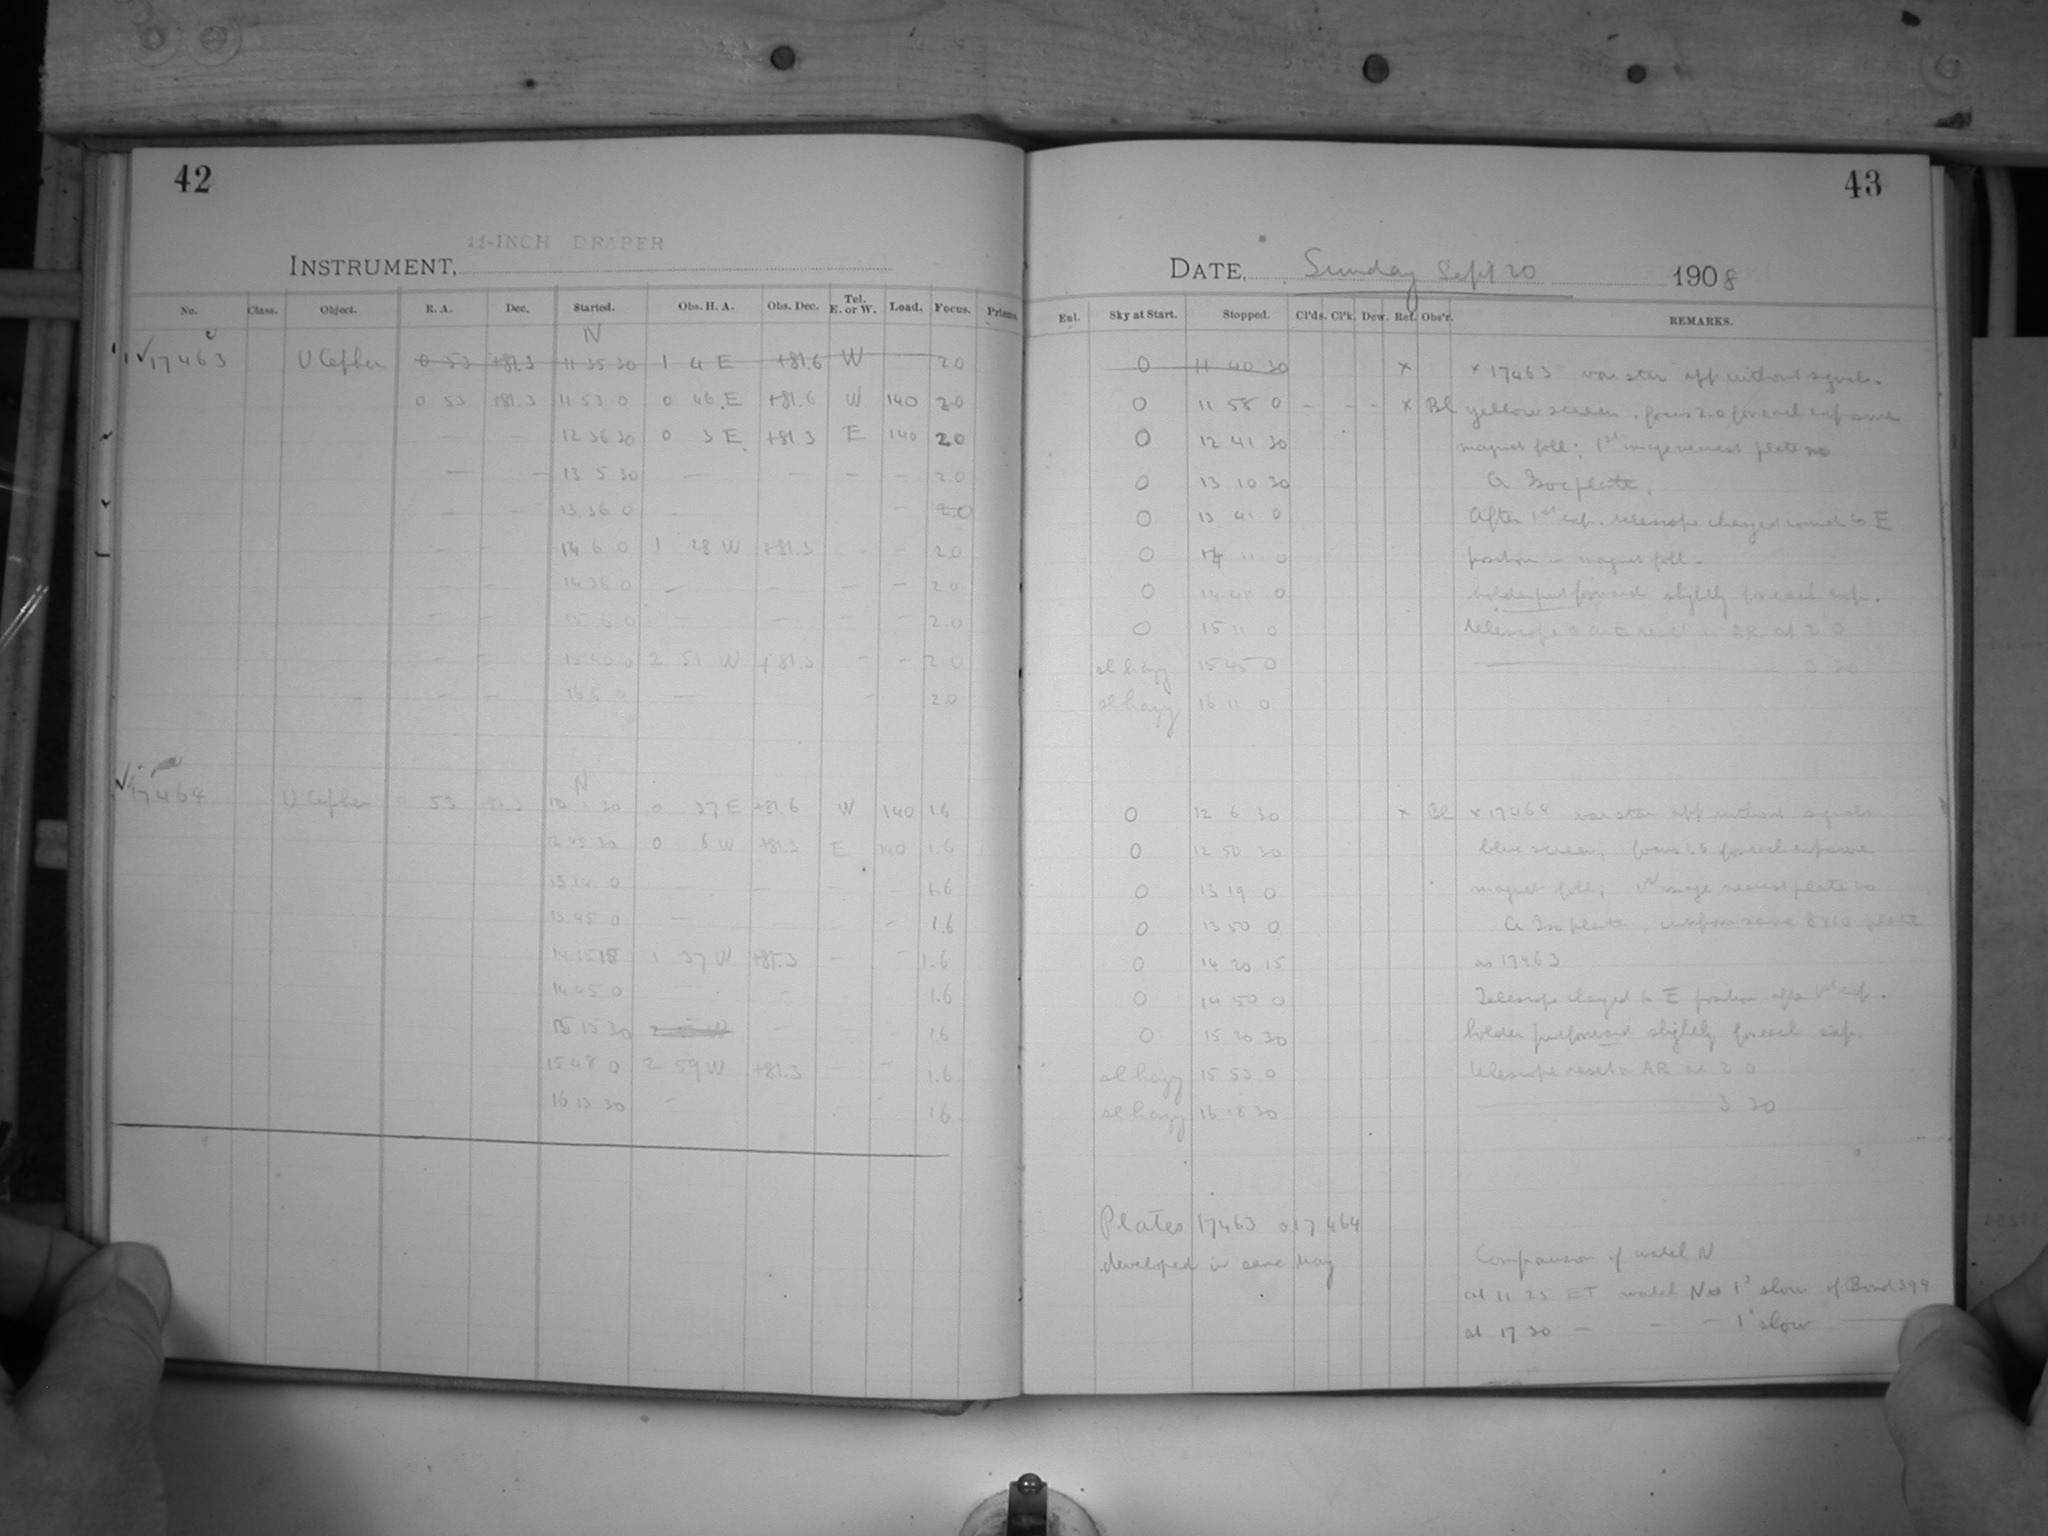 42
11-INCH DRAPER
INSTRUMENT,
No. Class. Object. R. A. Dec. Started. Obs. H. A. Obs. Dec. Tel. E. or W. Load. Focus. Prisms.
N
17463 U Cephei 0 53 +81.3 11 35 30 1 4 E +81.6 W 2.0
0 53 +81.3 11 53 0 0 46 E +81.6 W 140 2.0
— — 12 36 30 0 3 E +81.3 E 140 2.0
— — 13 5 30 — — — — 2.0
— — 13 36 0 — 2.0
— — 14 6 0 1 28 W +81.3 — — 2.0
— — 14 36 0 — — — 2.0
— — 15 6 0 — — — — 2.0
— — 15 40 0 2 51 W +81.3 — — 2.0
— — 16 6 0 — — 2.0
N
17464 U Cephei 0 53 +81.3 12 1 30 0 37 E +81.6 W 140 1.6
12 45 30 0 8 W +81.3 E 140 1.6
13 14 0 — — — — 1.6
13 45 0 — — 1.6
14 15 15 1 37 W +81.3 — — 1.6
14 45 0 — — 1.6
15 15 30 — — 1.6
15 48 0 2 59 W +81.3 — — 1.6
16 13 30 — 1.6
43
DATE, Sunday Sept 20 1908
Enl. Sky at Start. Stopped. Cl'ds. Cl'k. Dew. Ref. Obs'r. REMARKS.
0 11 40 30 x x 17463 var star app without signals.
0 11 58 0 – – – x Bl yellow screen, focus 2.0 for each exposure
0 12 41 30 magnet foll; 1st image nearest plate no
0 13 10 30 a Iso plate.
0 13 41 0 After 1st exp. telescope changed round to E
0 14 11 0 position – magnet foll.
0 14 41 0 holder put forward slightly for each exp.
0 15 11 0 telescope reset in AR at 2 0
sl hazy 15 45 0 — 3 30
sl hazy 16 11 0
0 12 6 30 x Bl x 17464 var star app without signals
0 12 50 30 blue screen, focus 1.6 for each exposure
0 13 19 0 magnet foll; 1st image nearest plate no
0 13 50 0 a Iso plate, cut from same 8x10 plate
0 14 20 15 as 17463
0 14 50 0 Telescope changed to E position after 1st exp.
0 15 20 30 holder put forward slightly for each exp.
sl hazy 15 53 0 telescope reset in AR at 2 0
sl hazy 16 18 30 — 3 30
Plates 17463 17464
developed in same way
Comparison of watch N
at 11 23 ET watch N 1s slow of Bond 394
at 17 30 — — — 1s slow —